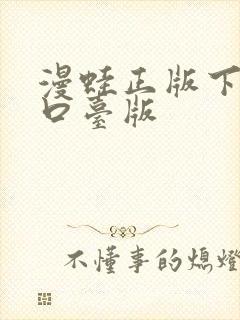 漫蛙正版下
口臺版
不懂事的熄燈